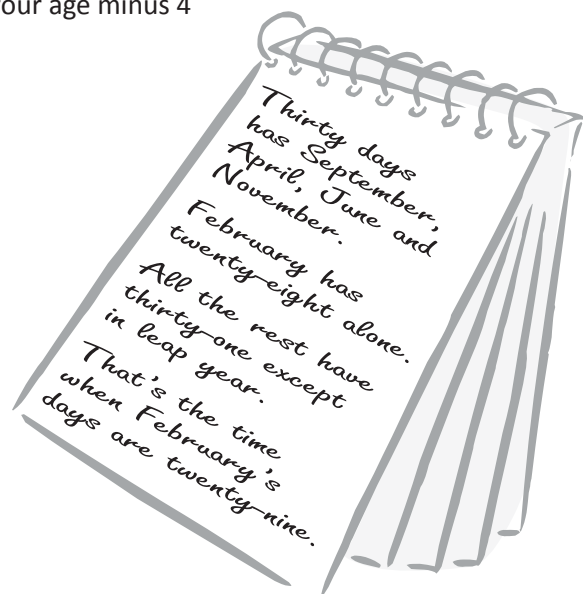 our age minus 4
Thirty days
has September,
April, June and
November.
February has
twenty-eight alone.
All the rest have
thirty-one except
in leap year.
That's the time
when February's
days are twenty-nine.